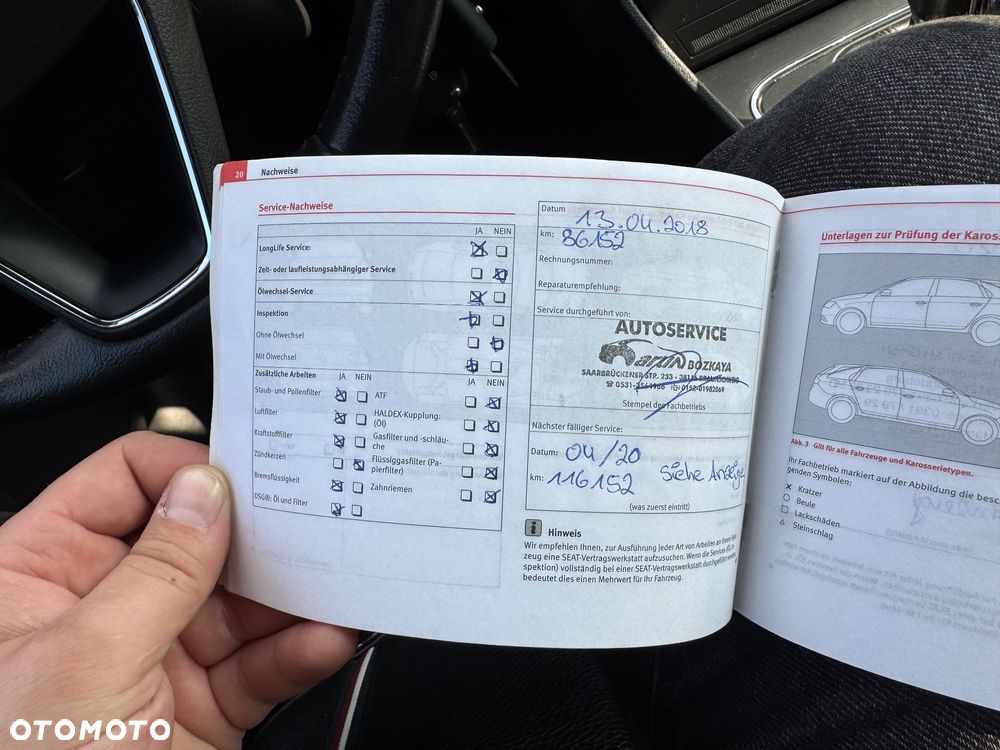 20 Nachweise
Service-Nachweise
JA NEIN
LongLife Service:
Zeit- oder laufleistungsabhängiger Service
Ölwechsel-Service
Inspektion
Ohne Ölwechsel
Mit Ölwechsel
Zusätzliche Arbeiten JA NEIN JA NEIN
Staub- und Pollenfilter
Luftfilter
Kraftstofffilter
Zündkerzen
Bremsflüssigkeit
DSG®: Öl und Filter
ATF
HALDEX-Kupplung:
(Öl)
Gasfilter und -schläu-
che
Flüssiggasfilter (Pa-
pierfilter)
Zahnriemen
Datum 13.04.2018
km: 86152
Rechnungsnummer:
Reparaturempfehlung:
Service durchgeführt von:
AUTOSERVICE
BOZKAYA
SAARBRÜCKENER STR. 253 - 38116
Stempel des Fachbetriebs
Nächster fälliger Service:
Datum: 04/20
km: 116152 siehe Anzeige
(was zuerst eintritt)
Hinweis
Wir empfehlen Ihnen, zur Ausführung jeder Art von Arbeiten an Ihrem Fahr-
zeug eine SEAT-Vertragswerkstatt aufzusuchen. Wenn die Services (Öl, In-
spektion) vollständig bei einer SEAT-Vertragswerkstatt durchgeführt werden,
bedeutet dies einen Mehrwert für Ihr Fahrzeug.
Unterlagen zur Prüfung der Karos
Abb. 3 Gilt für alle Fahrzeuge und Karosserietypen.
Ihr Fachbetrieb markiert auf der Abbildung die besc
genden Symbolen:
× Kratzer
○ Beule
□ Lackschäden
△ Steinschlag
OTOMOTO